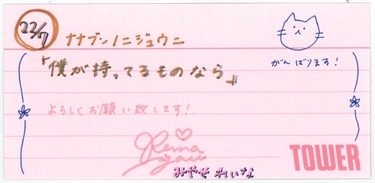 22/7 ナナブンノニジュウニ
がんばります!
「僕が持ってるものなら」
よろしくお願い致します!
Reina
みやせ れいな
TOWER